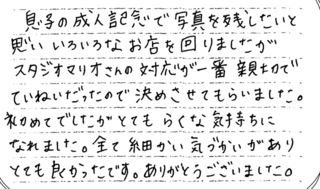 息子の成人記念で写真を残したいと
思い いろいろな お店を 回りましたが
スタジオマリオさんの 対応が一番 親切で
ていねいだったので 決めさせてもらいました。
初めてでしたが とても らくな 気持ちに
なれました。全て 細かい 気づかいがあり
とても 良かったです。ありがとうございました。